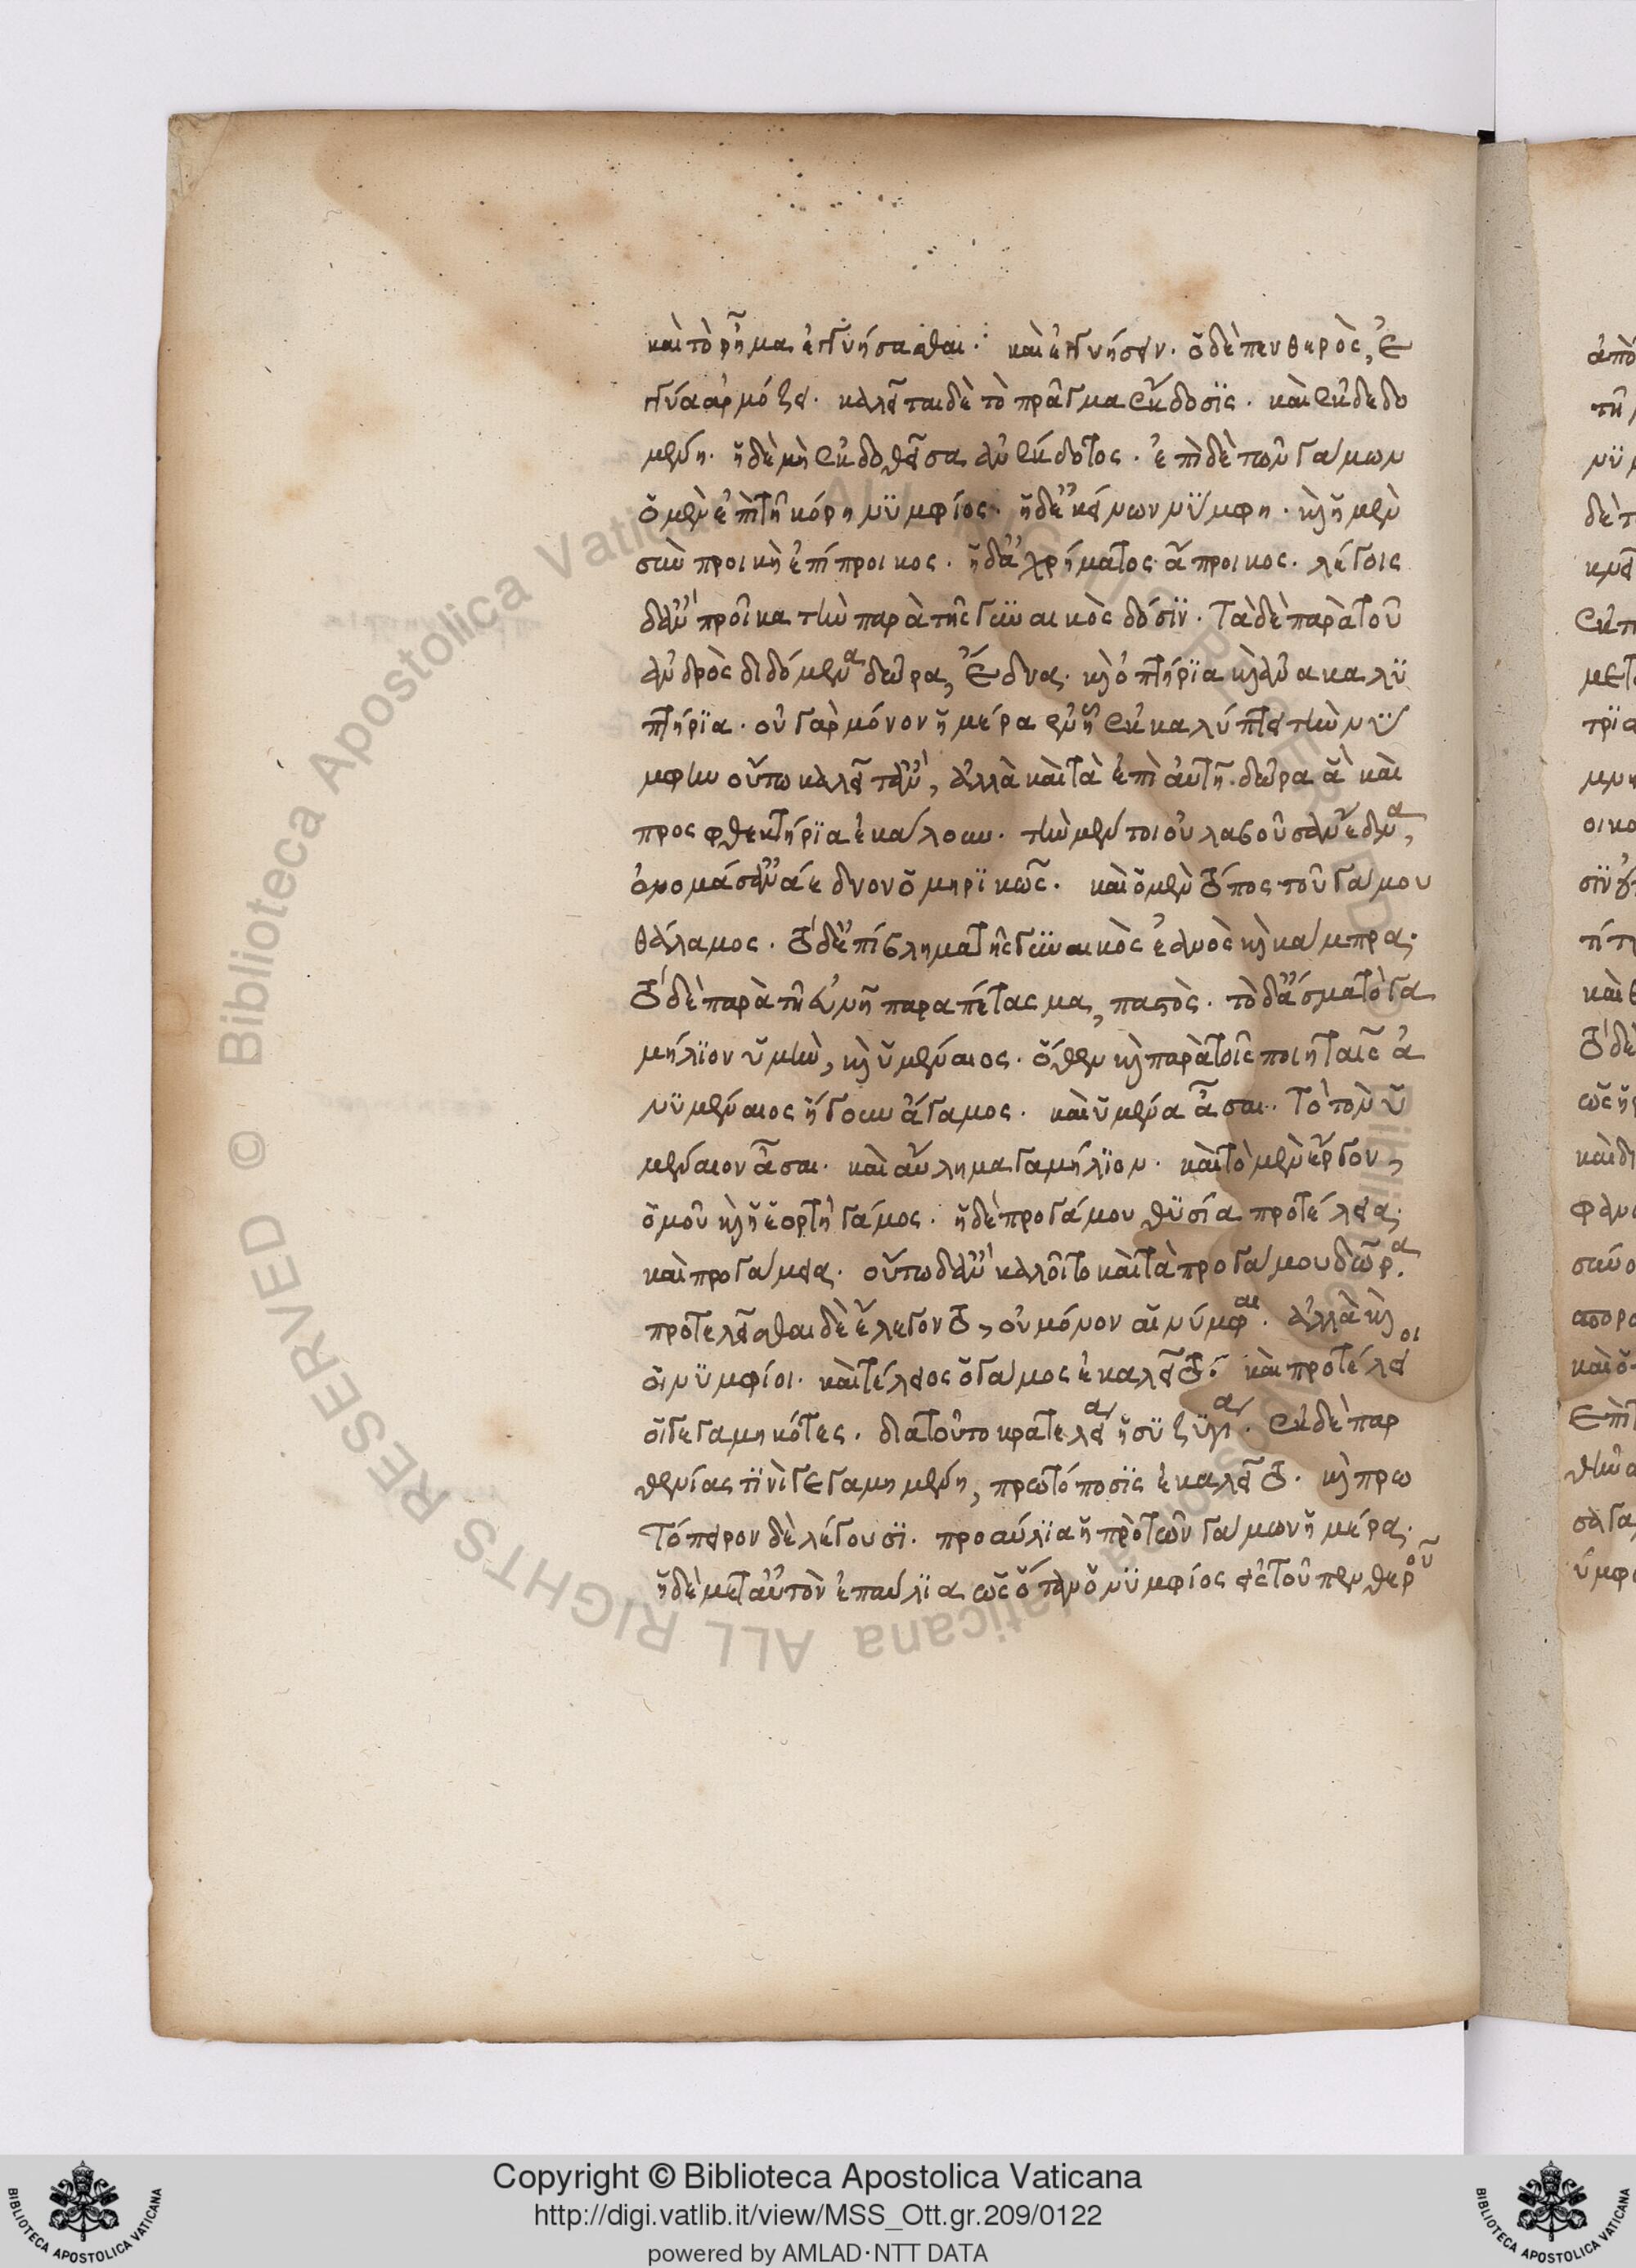 καὶ τὸ ῥῆμα ἐγγυήσασθαι· καὶ ἐγγυήσειν. ὁ δὲ πενθερὸς, ἐ
γγύα ἁρμόζει. καλεῖται δὲ τὸ πρᾶγμα ἔκδοσϊς. καὶ ἐκδεδο
μένη. ἡ δὲ μὴ ἐκδοθεῖσα ἀνέκδοτος. ἐπὶ δὲ τῶν γάμων
ὁ μὲν ἐπὶ τῇ κόρη νϋμφίος. ἡ δ' ἐκείνων νϋμφη. κὶ ἡ μὲν
σὺν προικὴ ἐπίπροικος. ἡ δ' ἀχρήματος ἄπροικος. λέγοις
δ' ἂν προῖκα τὴν παρὰ τῆς γϋναικὸς δόσϊν. τὰ δὲ παρὰ τοῦ
ἀνδρὸς διδόμενα δῶρα, ἕδνα. κὶ ὀπτήρϊα κὶ ἀνακαλϋ
πτήρϊα. οὐ γὰρ μόνον ἡ μέρα ἐν ᾗ ἐκκαλύπτει τὴν νϋ
μφην οὕτω καλεῖτ' ἂν, ἀλλὰ καὶ τὰ ἐπ' αὐτῇ δῶρα ἃ καὶ
προσφθεκτήρϊα ἐκάλουν. τὴν μέν τοι οὐ λαβοῦσαν ἕδνα,
ὀνομάσαν ἀέδνον ὁμηρϊκῶς. καὶ ὁ μὲν τόπος τοῦ γάμου
θάλαμος. τὸ δ' ἐπίβλημα τῆς γϋναικὸς ἑανὸς κὶ κάμπρα.
τὸ δὲ παρὰ τῇ εὐνῇ παραπέτασμα, παστὸς. τὸ δ' ᾆσμα τὸ γα
μήλϊον ὕμνιὸν, κὶ ὑμέναιος. ὅθεν κὶ παρὰ τοῖς ποιηταῖς ἀ
νϋμέναιος ἤγουν ἄγαμος. καὶ ὑμένα ᾆσαι. τὸ τὸν ὑ
μέναιον ᾆσαι. καὶ αὔλημα γαμήλϊον. καὶ τὸ μὲν ἔργον,
ὁμοῦ κὶ ἡ ἑορτὴ γάμος. ἡ δὲ προγάμου θϋσία προτέλεια.
καὶ προγάμεια. οὕτω δ' ἂν καλοῖτο καὶ τὰ προγάμου δῶρα.
προτελεῖσθαι δὲ ἔλεγον το, οὐ μόνον αἱ νύμφαι. ἀλλὰ κὶ
οἱ νϋμφίοι. καὶ τέλειος ὁ γάμος ἐκαλεῖτο. καὶ προτέλειοι
οἱ γεγαμηκότες. διὰ τοῦτο κρατελεία ἡ σϋζϋγία. ἐκ δὲ παρ
θενίας τϊνὶ γεγαμημένη, πρωτόποσϊς ἐκαλεῖτο. κὶ πρω
τόπειρον δὲ λέγουσϊ. προαύλϊα ἡ πρὸ τῶν γάμων ἡμέρα.
ἡ δὲ μετ' αὐτὸν ἐπαύλϊα ὡς ὅταν ὁ νϋμφίος εἰς τοῦ πενθεροῦ
Copyright © Biblioteca Apostolica Vaticana
http://digi.vatlib.it/view/MSS_Ott.gr.209/0122
powered by AMLAD·NTT DATA